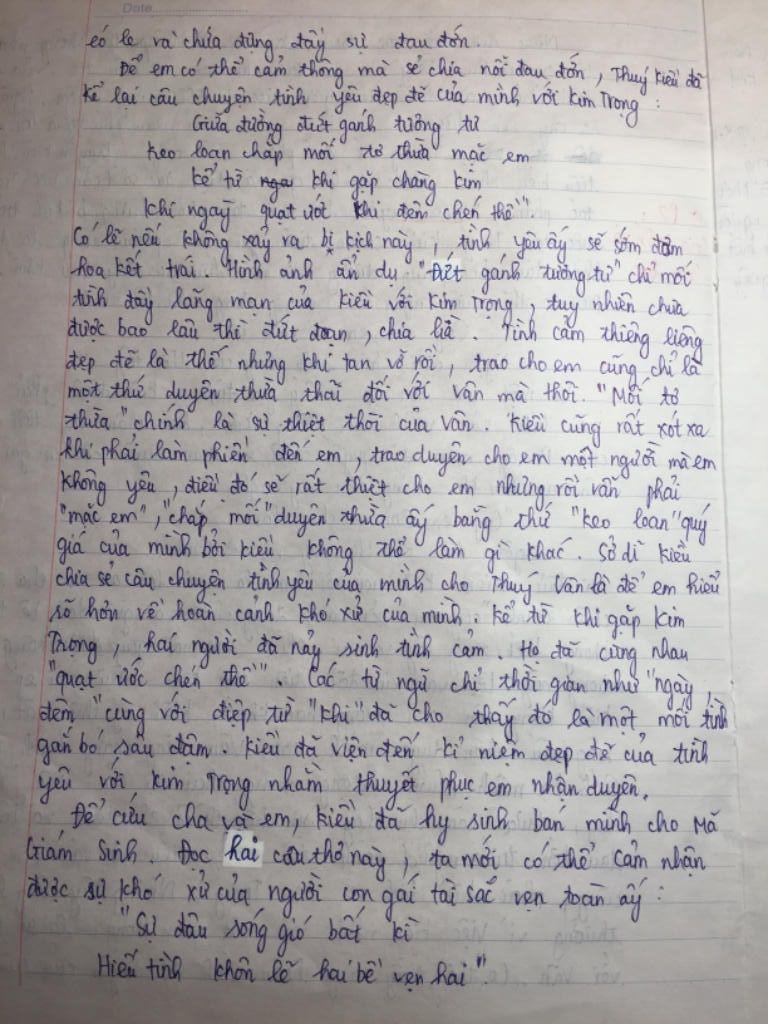 Date
éo le và chứa đựng đầy sự đau đớn.
Để em có thể cảm thông mà sẻ chia nỗi đau đớn, Thuý Kiều đã
kể lại câu chuyện tình yêu đẹp đẽ của mình với Kim Trọng :
Giữa đường đứt gánh tương tư
Keo loan chắp mối tơ thừa mặc em
Kể từ khi gặp chàng Kim
Khi ngày quạt ước khi đêm chén thề"
Có lẽ nếu không xảy ra bi kịch này, tình yêu ấy sẽ sớm đơm
hoa kết trái. Hình ảnh ẩn dụ "Đứt gánh tương tư" chỉ mối
tình đầy lãng mạn của Kiều với Kim Trọng, tuy nhiên chưa
được bao lâu thì đứt đoạn, chia lìa. Tình cảm thiêng liêng
đẹp đẽ là thế nhưng khi tan vỡ rồi, trao cho em cũng chỉ là
một thứ duyên thừa thãi đối với Vân mà thôi. "Mối tơ
thừa" chính là sự thiệt thòi của Vân. Kiều cũng rất xót xa
khi phải làm phiền đến em, trao duyên cho em một người mà em
không yêu, điều đó sẽ rất thiệt cho em nhưng rồi vẫn phải
"mặc em", "chắp mối" duyên thừa ấy bằng thứ "keo loan" quý
giá của mình bởi Kiều không thể làm gì khác. Sở dĩ Kiều
chia sẻ câu chuyện tình yêu của mình cho Thuý Vân là để em hiểu
rõ hơn về hoàn cảnh khó xử của mình. Kể từ khi gặp Kim
Trọng, hai người đã nảy sinh tình cảm. Họ đã cùng nhau
"quạt ước chén thề". Các từ ngữ chỉ thời gian như "ngày,
đêm" cùng với điệp từ "khi" đã cho thấy đó là một mối tình
gắn bó sâu đậm. Kiều đã viện đến kỉ niệm đẹp đẽ của tình
yêu với Kim Trọng nhằm thuyết phục em nhận duyên.
Để cứu cha và em, Kiều đã hy sinh bán mình cho Mã
Giám Sinh. Đọc hai câu thơ này, ta mới có thể cảm nhận
được sự khó xử của người con gái tài sắc vẹn toàn ấy :
"Sự đâu sóng gió bất kì
Hiếu tình khôn lẽ hai bề vẹn hai".